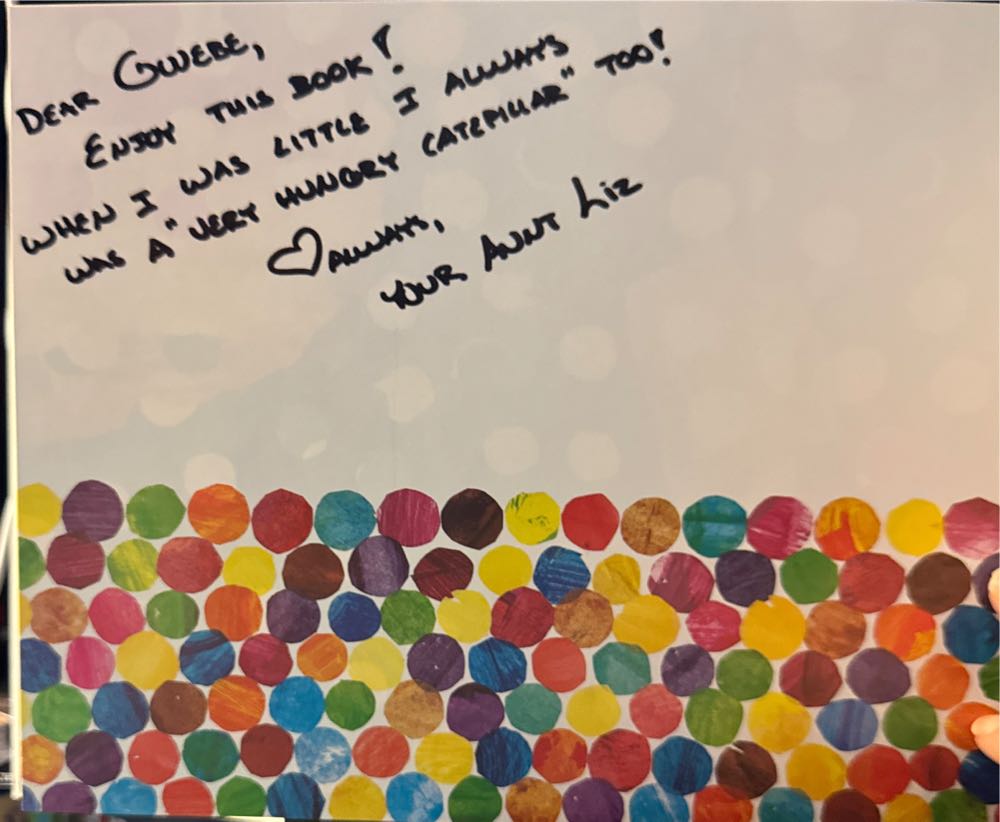 DEAR GWEBE,
ENJOY THIS BOOK!
WHEN I WAS LITTLE I ALWAYS
WAS A "VERY HUNGRY CATEPILLAR" TOO!
♡ ALWAYS,
YOUR AUNT LIZ